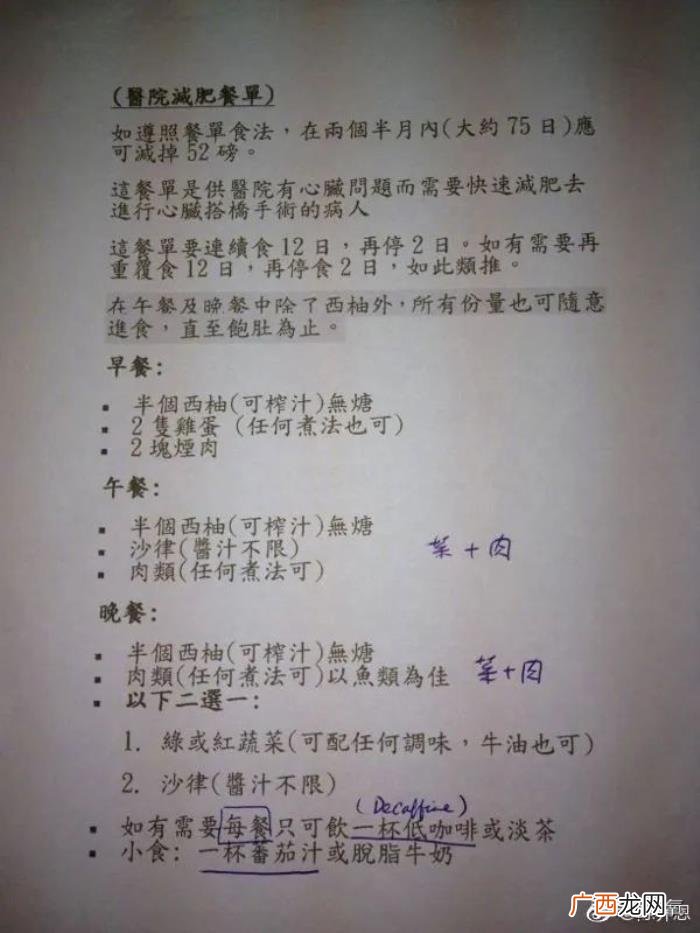 (醫院減肥餐單)
如遵照餐單食法，在兩個半月內(大約75日)應
可減掉52磅。
這餐單是供醫院有心臟問題而需要快速減肥去
進行心臟搭橋手術的病人
這餐單要連續食12日，再停2日。如有需要再
重覆食12日，再停食2日，如此類推。
在午餐及晚餐中除了西柚外，所有份量也可隨意
進食，直至飽肚為止。
早餐:
▪ 半個西柚(可榨汁)無糖
▪ 2隻雞蛋 (任何煮法也可)
▪ 2塊煙肉
午餐:
▪ 半個西柚(可榨汁)無糖
▪ 沙律(醬汁不限) 菜+肉
▪ 肉類(任何煮法可)
晚餐:
▪ 半個西柚(可榨汁)無糖
▪ 肉類(任何煮法可)以魚類為佳 菜+肉
▪ 以下二選一:
1. 綠或紅蔬菜(可配任何調味，牛油也可)
2. 沙律(醬汁不限)
(Decaffine)
▪ 如有需要每餐只可飲一杯低咖啡或淡茶
▪ 小食: 一杯蕃茄汁或脫脂牛奶
广西龙网